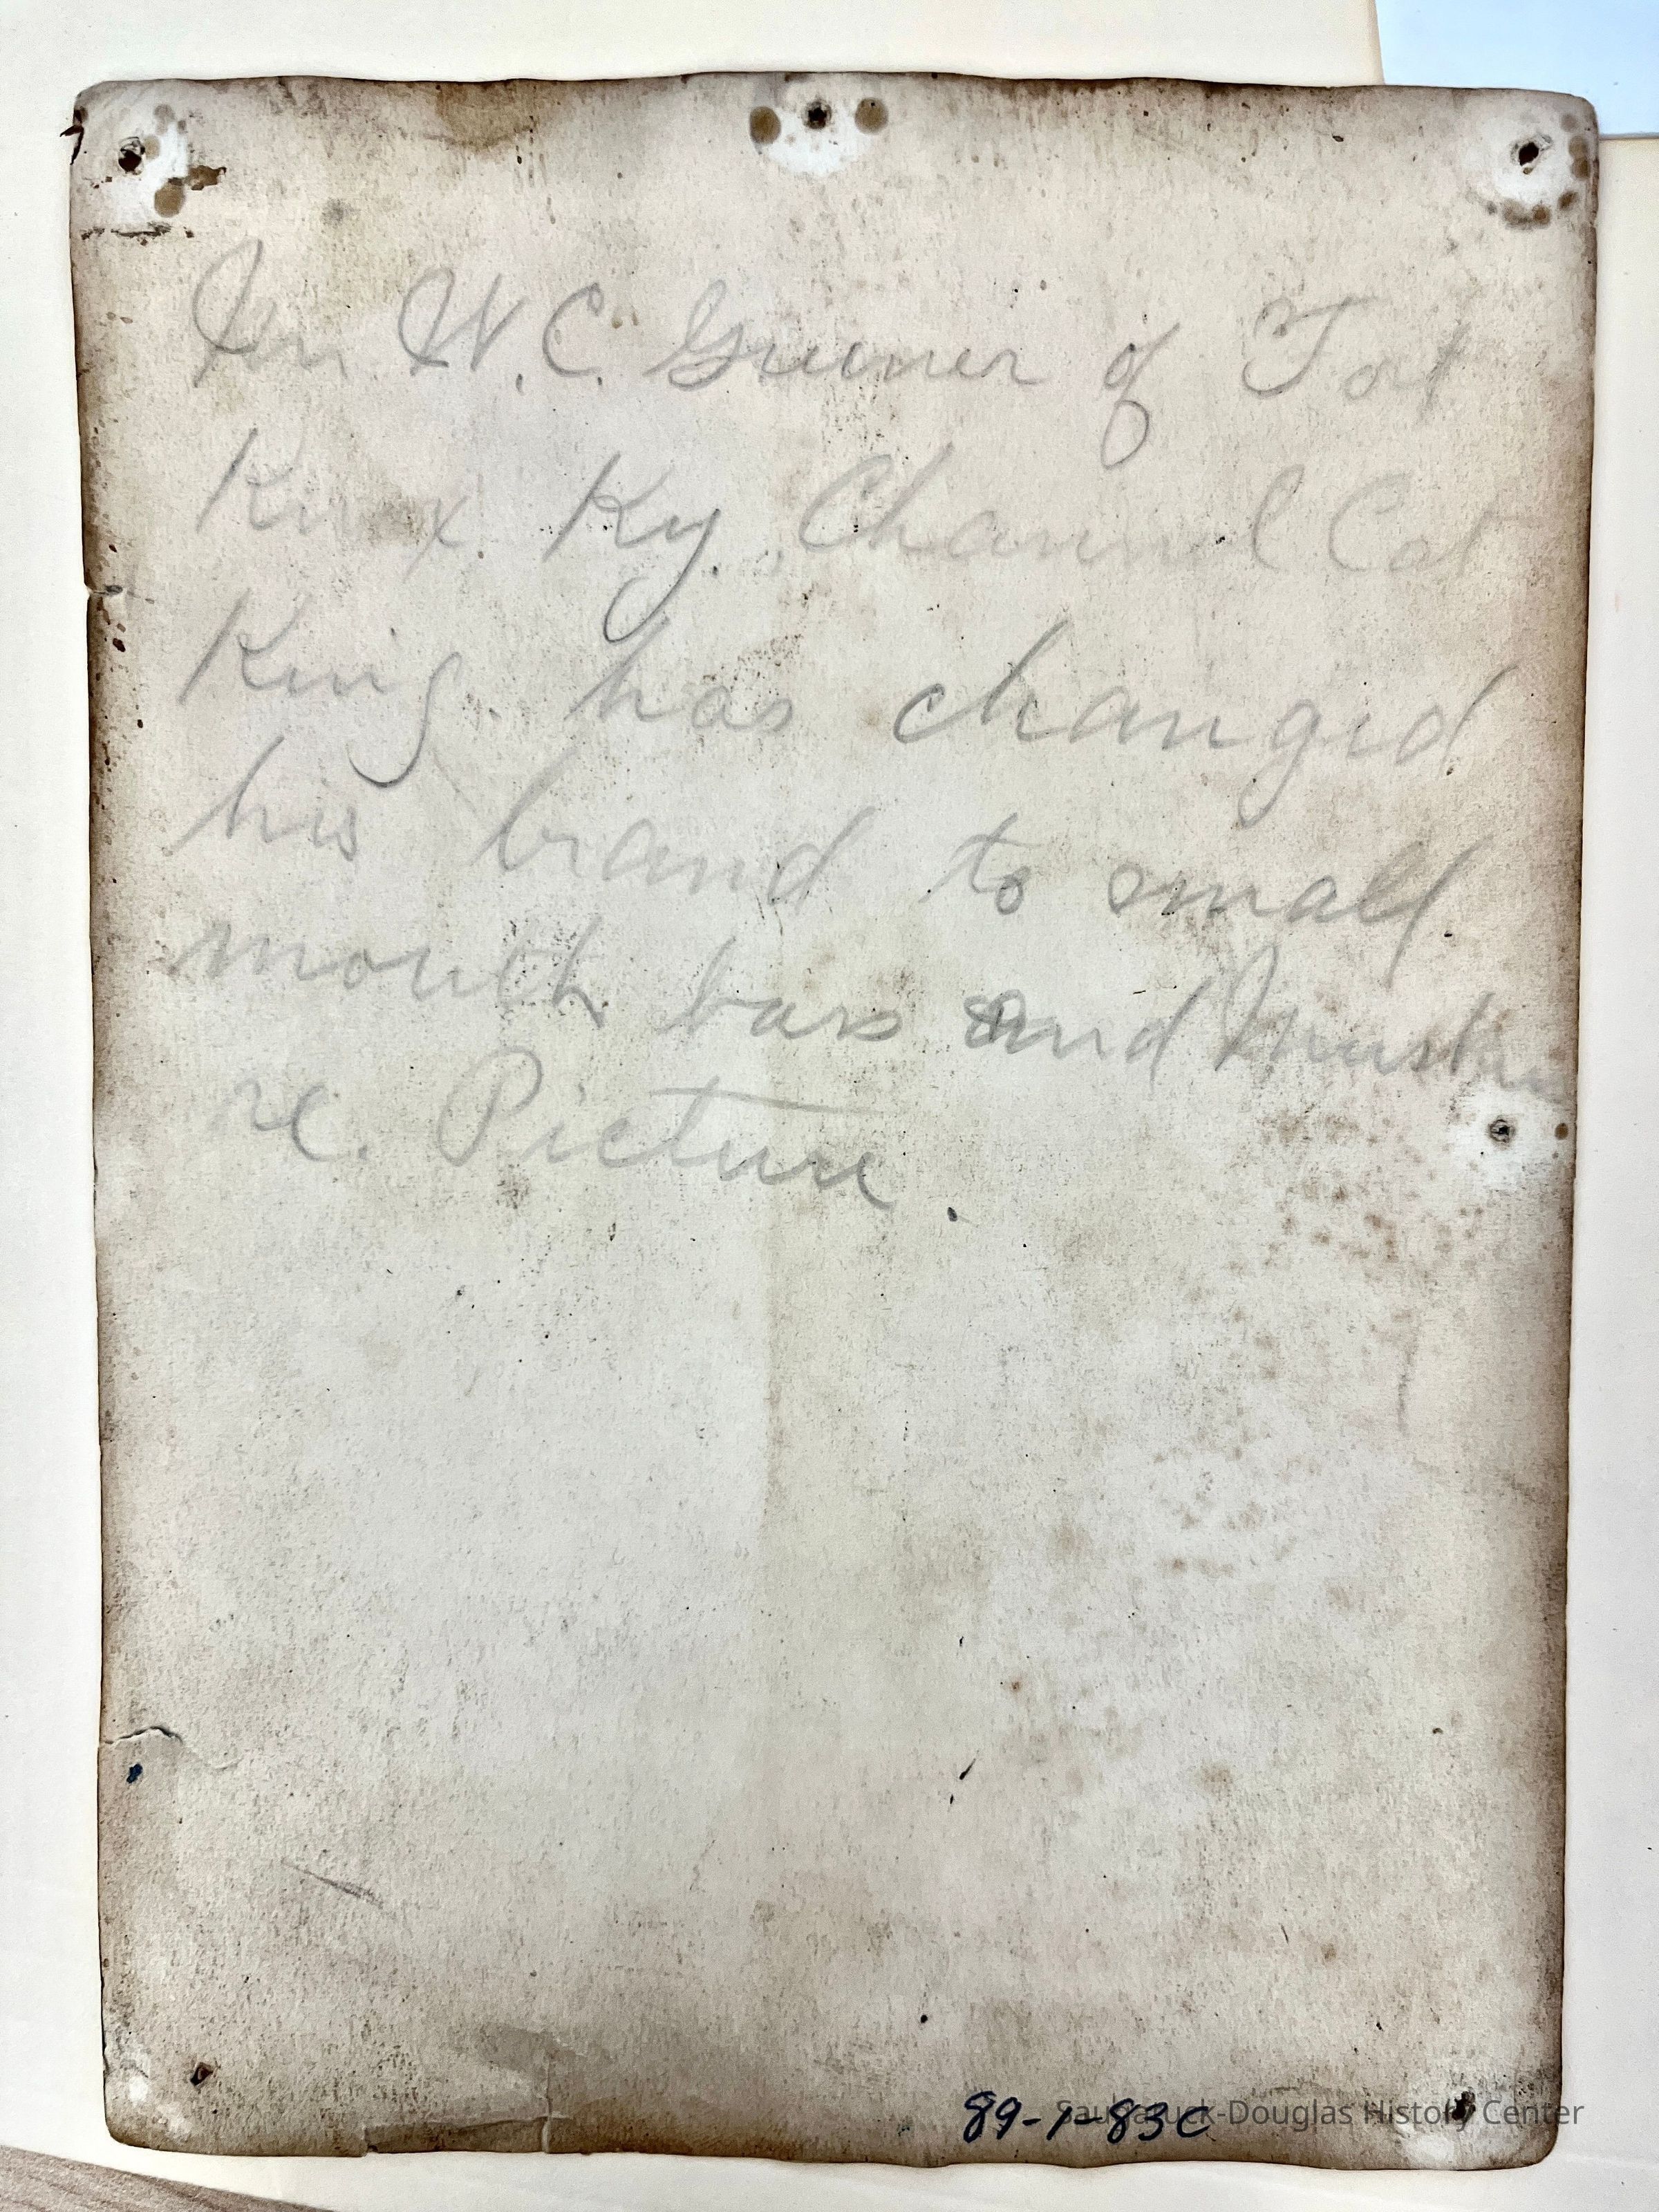 Mr. W.C. Greener of Fort
Knox Ky. Channel Cat
King has changed
his brand to small
mouth bass and
Picture.
89-1-83C
Saugatuck-Douglas History Center